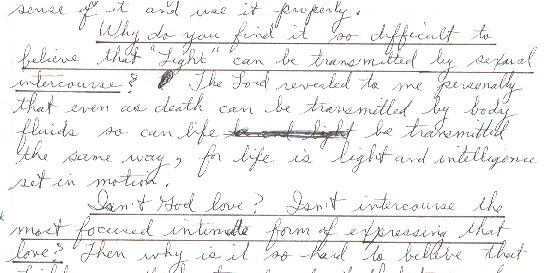 sense of it and use it properly.
Why do you find it so difficult to
believe that "Light" can be transmitted by sexual
intercourse? The Lord revealed to me personally
that even as death can be transmitted by body
fluids so can life be transmitted
the same way, for life is light and intelligence
set in motion.
Isn't God love? Isn't intercourse the
most focused intimate form of expressing that
love? Then why is it so hard to believe that